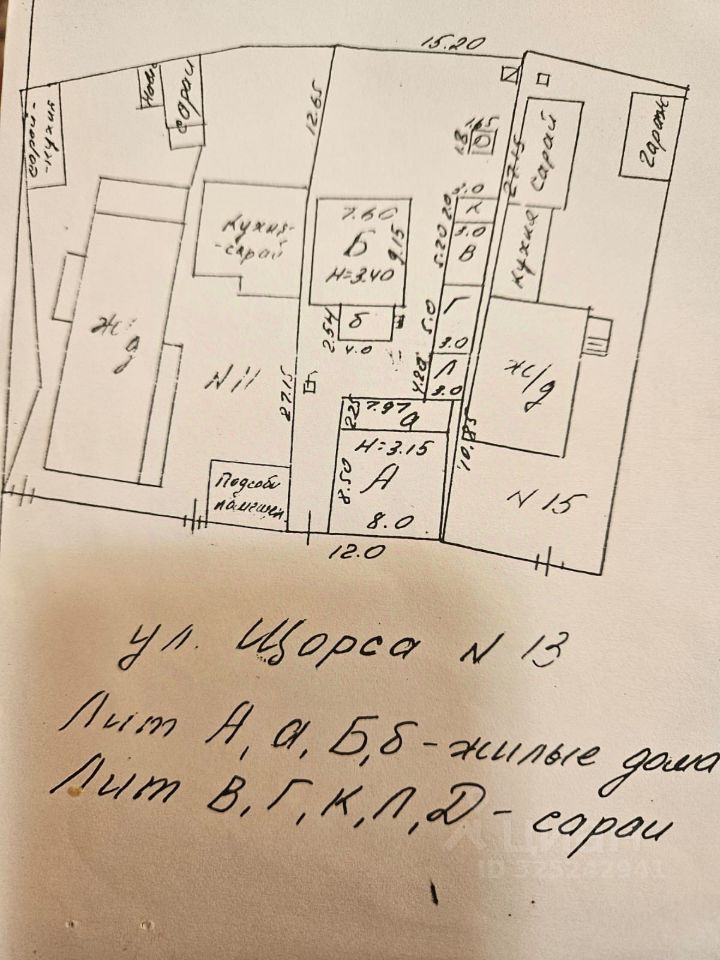 15.20
Нов.
сарай
сарай-
-кухня
12.65
1.8
27.15
сарай
гараж
Кухня-
-сарай
7.60
Б
9.15
Н=3.40
3.0
2.0
К
3.0
5.20
В
кухня
2.54
б
4.0
5.0
Г
3.0
ж/д
N 11
27.15
4.20
Л
3.0
ж/д
2.25
7.97
а
Н=3.15
8.50
А
8.0
10.85
N 15
Подсобн
помещен.
12.0
ул. Щорса N 13
Лит А, а, Б, б - жилые дома
Лит В, Г, К, Л, Д - сараи
ID 323232941